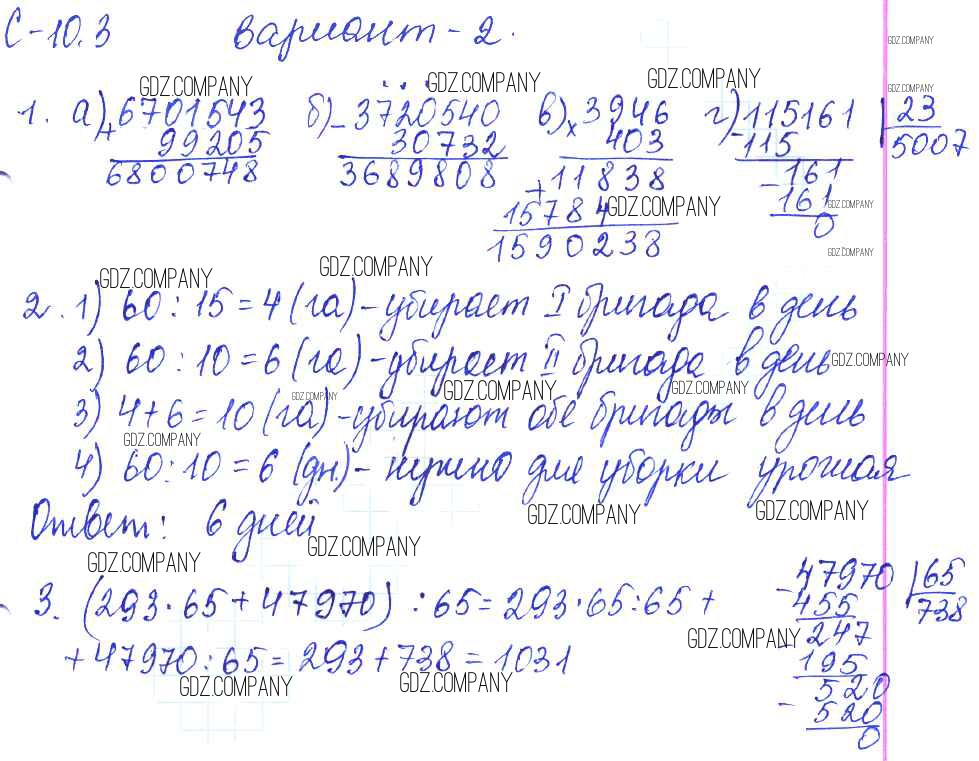 С-10.3 Вариант-2.
GDZ.COMPANY
GDZ.COMPANY GDZ.COMPANY GDZ.COMPANY GDZ.COMPANY
1. а) + 6701543 б) - 3720540 в) × 3946 г) - 115161 | 23
99205 30732 403 115 5007
6800748 3689808 + 11838 - 161
15784 GDZ.COMPANY 161 GDZ.COMPANY
1590238 0
GDZ.COMPANY GDZ.COMPANY GDZ.COMPANY
2. 1) 60 : 15 = 4 (га) - убирает I бригада в день
2) 60 : 10 = 6 (га) - убирает II бригада в день GDZ.COMPANY
GDZ.COMPANY GDZ.COMPANY GDZ.COMPANY
3) 4+6 = 10 (га) - убирают обе бригады в день
GDZ.COMPANY
4) 60:10 = 6 (дн.) - нужно для уборки урожая
GDZ.COMPANY GDZ.COMPANY
Ответ: 6 дней
GDZ.COMPANY GDZ.COMPANY
3. (293·65 + 47970) : 65 = 293·65:65 +
+ 47970:65 = 293 + 738 = 1031
GDZ.COMPANY GDZ.COMPANY
- 47970 | 65
455 738
GDZ.COMPANY - 247
195
- 520
520
0